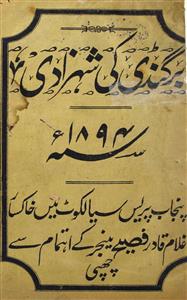 برگنڈی کی شہزادی
۱۸۹۴ء
سنہ
پنجاب پریس سیالکوٹ میں خاکسار
غلام قادر فصیح مینجر کے اہتمام سے
چھپی